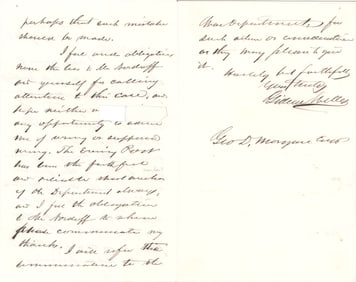 perhaps that such mistakes
should be made.
I feel under obligations
none the less to Mr Nordhoff
and yourself for calling
attention to this case, and
hope neither
any opportunity to advise
me of wrong or supposed
wrong. The Evening Post
has been the faithful
and reliable
of the Department always,
and I feel the obligation
to Mr Nordhoff to whom
please communicate my
thanks.
I will refer the
communication to the
War Department, for
such action or consideration
as they may please to give
it.
Hastily but faithfully
Yours truly
Gideon Welles
Geo D. Morgan Esq